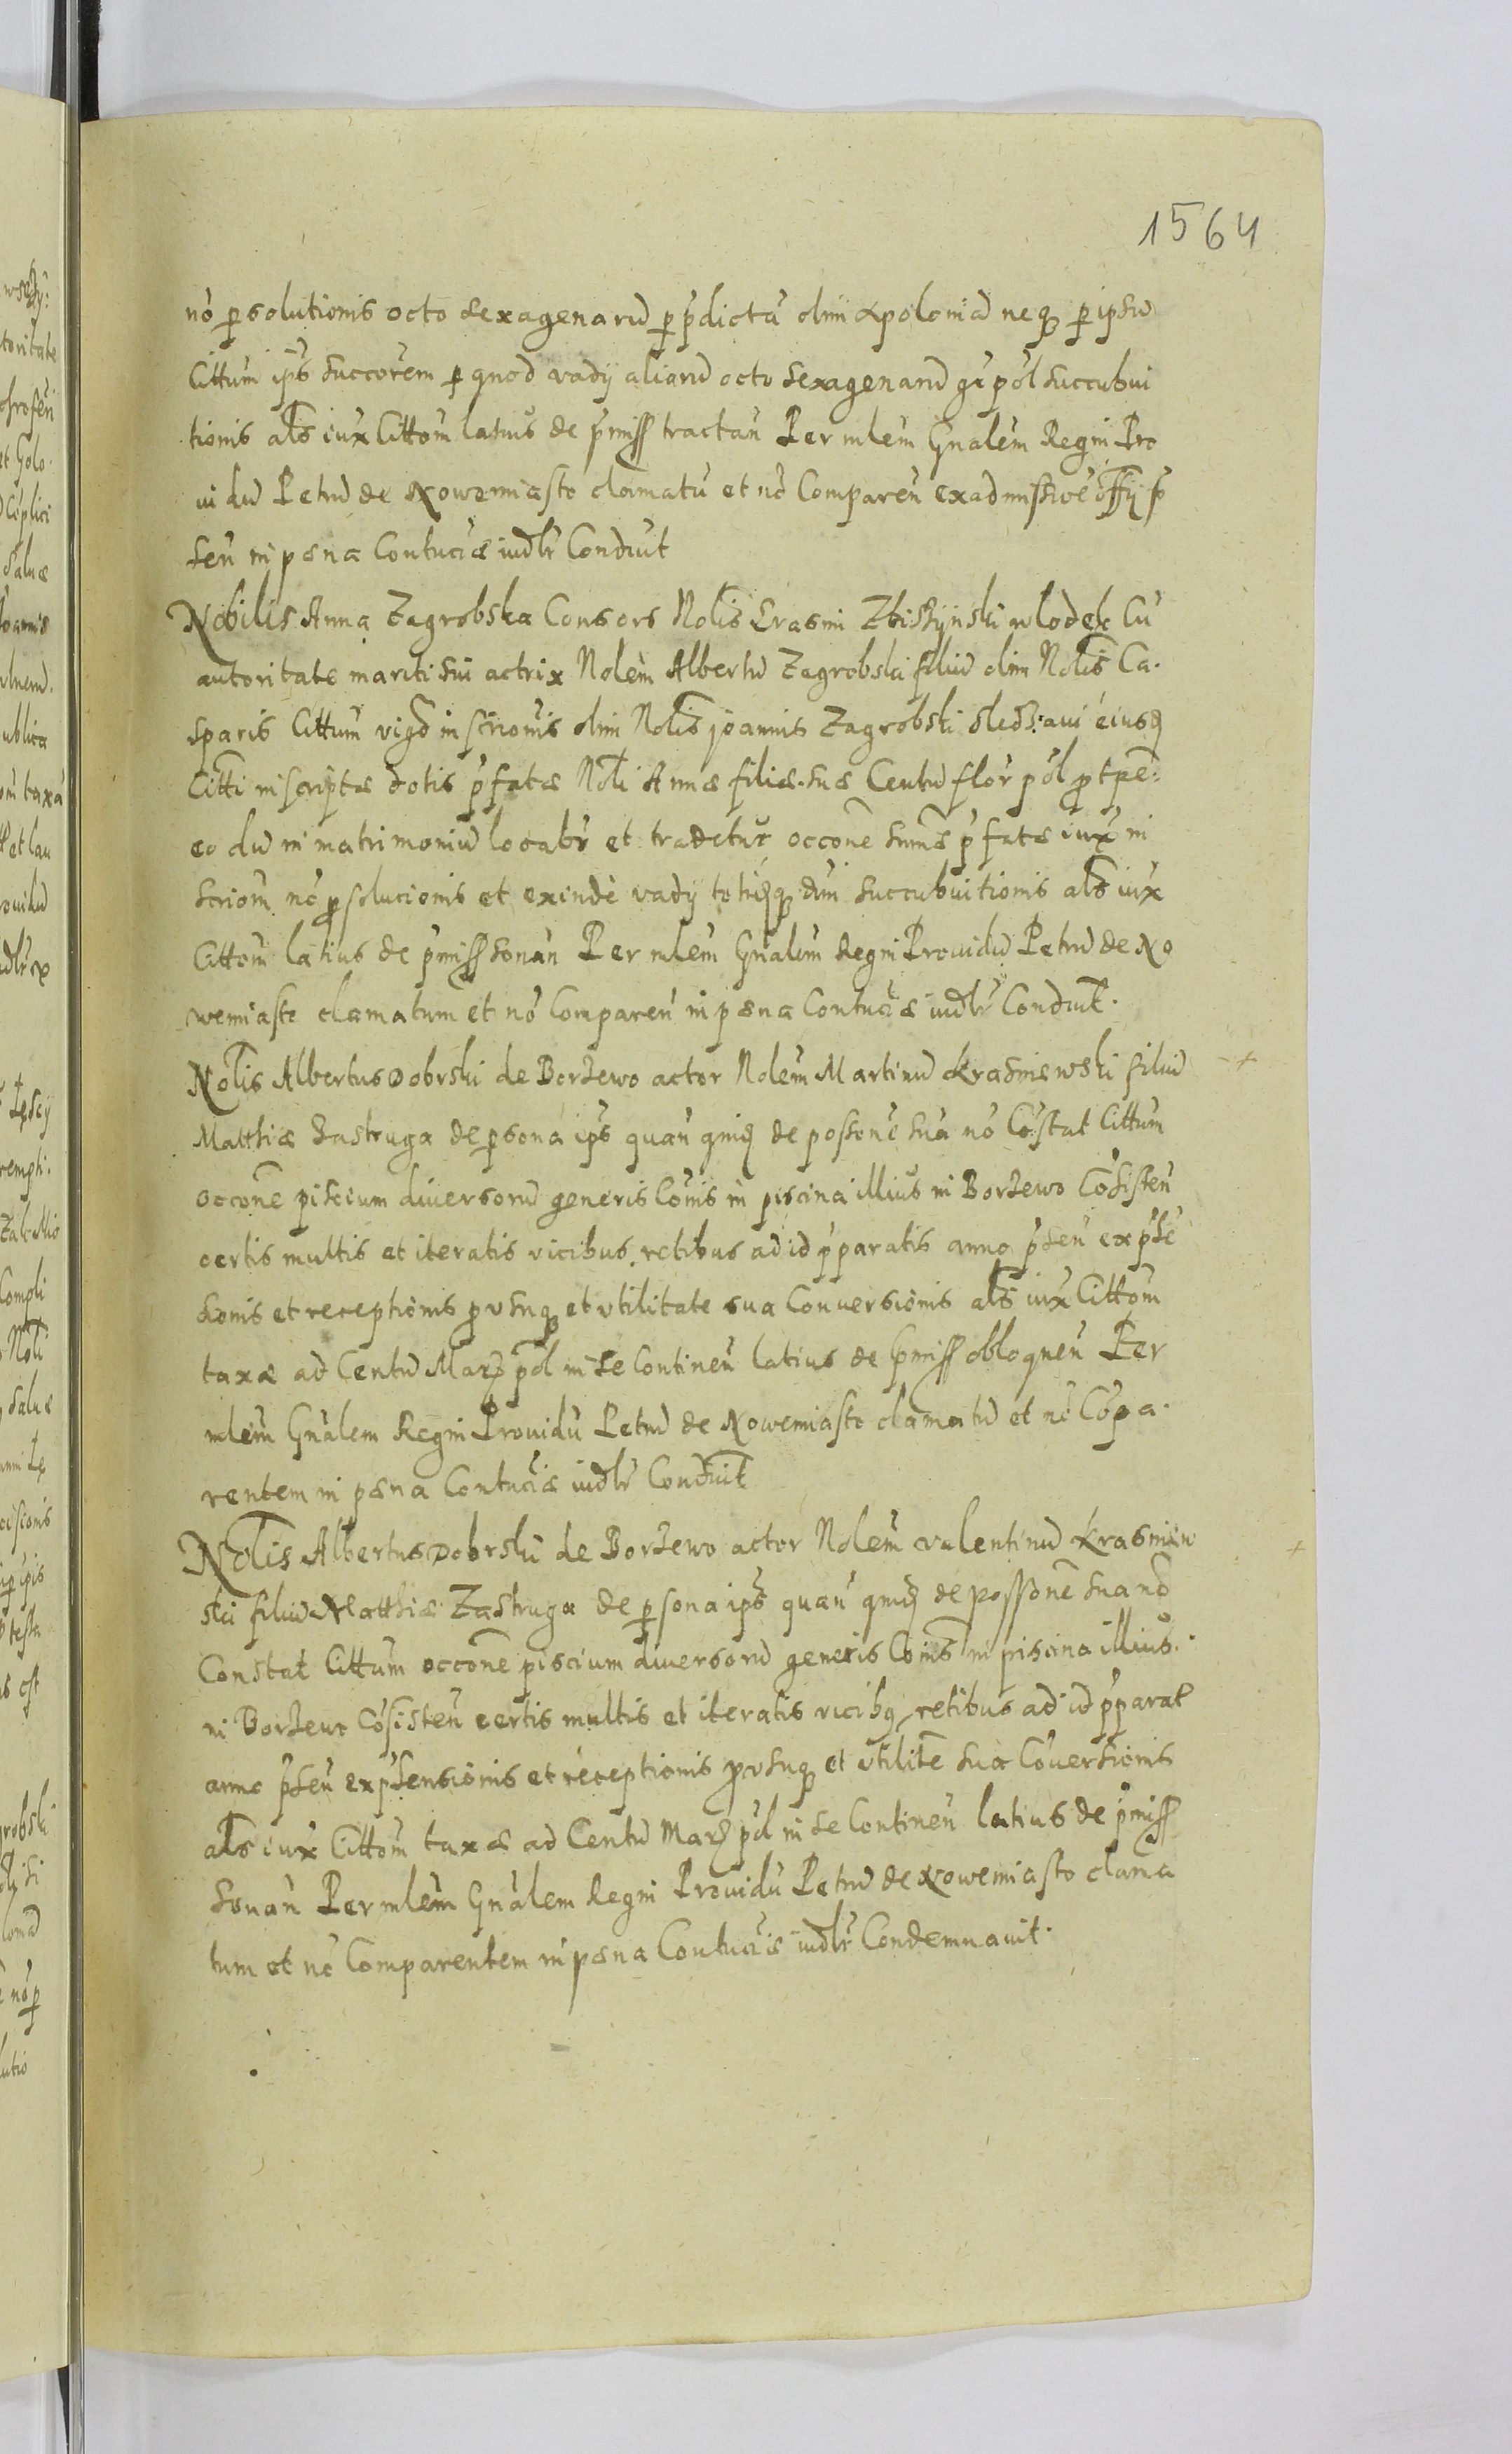 1564
nō p̱solutionis octo sexagenarū p̱ p̄dictā olim Apoloniā neqȝ p̱ ipsū
Cittum ip̄s succorem p̱ quod vadij aliarū octo sexagenarū gr pol succubui
tionis al̄s iux Cittom̄ latius de p̄miss tractan̄ Per mlem̄ Gn̄alem̄ Regni Pro
uidū Petrū de Nowemiasto clamatū et nō Comparen̄ ex admissive offij p̄
sen̄ in pæna Contuciæ iudlr̄ Conduit
Nobilis Anna Zagrobska Consors Nol̄is Erasmi Zbissÿnski wlodek Cū
autoritate mariti sui actrix Nolem̄ Albertū Zagrobski filiū olim Nol̄is Ca
sparis Cittum vigo inscriōnis olim Nol̄is joannis Zagrobski aui eiusȝ
Citti inscriptæ dotis p̄fatæ Nol̄i Annæ filiæ suæ Centū flor pol p̱ tp̄e
eo dū in matrimoniū locabr̄ et tradetur occōne sum̄æ p̄fatæ iux in
scriom̄ nō p̱solucionis et exinde vadij totiusqȝ succubuitionis al̄s iux
Cittom̄ latius de p̄miss sonan̄ Per mlem̄ Gn̄alem Regni Prouidū Petrū de No
wemiasto clamatum et nō Comparen̄ in pæna Contuciæ iudlr̄ Conduit.
Nol̄is Albertus Dobrski de Borzewo actor Nolem̄ Martinū Krasniewski filiū
Matthiæ Zastruga de p̱sona ip̄s quan̄ de possōne sua nō Cōstat Cittum
occōne piscium diuersorū generis Cōnis in piscina illius in Borzewo Cōsisten̄
certis multis et iteratis vicibus retibus ad id p̄paratis anno p̄sen̄ exp̄sē
sionis et receptionis p̱ vsuqȝ et vtilitate sua Conversionis al̄s iux Cittom̄
taxæ ad Centū Marȝ pol in se Continen̄ latius de p̄miss obloquen̄ Per
mlem̄ Gn̄alem Regni Prouidū Petrū de Nowemiasto clamatū et nō Cōpa
rentem in pæna Contuciæ iudlr̄ Conduit
Nol̄is Albertus Dobrski de Borzewo actor Nolem̄ valentinū Krasniew
ski filiū Matthiæ Zastruga de p̱sona ip̄s quan̄ de possōne sua nō
Constat Cittum occōne piscium diuersorū generis Cōnis in piscina illius
in Borzewo Cōsisten̄ certis multis et iteratis vicibȝ retibus ad id p̄parat
anno p̄sen̄ exp̄sensionis et receptionis p̱ vsuqȝ et vtilitē sua Cōuersionis
al̄s iux Cittom̄ taxæ ad Centū Marȝ pol in se Continen̄ latius de p̄miss
sonan̄ Per mlem̄ Gn̄alem Regni Prouidū Petrū de Nowemiasto clama
tum et nō Comparentem in pæna Contuciæ iudlr̄ Condemnauit.